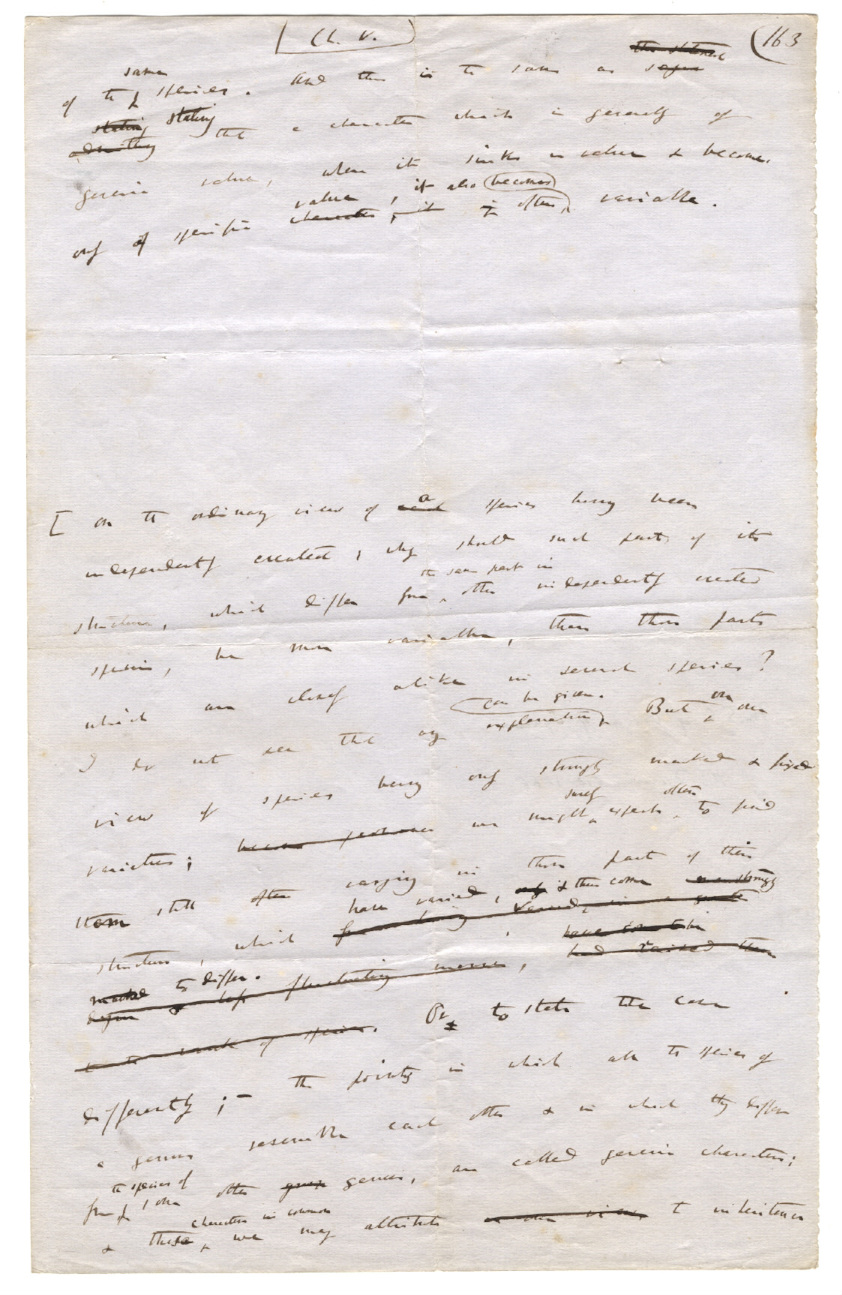 Ch. V.
(163
same
of the species. And this is the same as
stating stating
admitting that a character which is generally of
generic value, when it sinks in value & becomes
value, it also becomes
only of specific character, it is often variable.
[ On the ordinary view of each a species having been
independently created, why should such parts of its
the same part in
structure, which differ from other independently created
species, be more variable, than those parts
which are closely alike in several species?
can be given.
I do not see that any explanation But on our
view of species being only strongly marked & fixed
surely often
varieties; we might expect to find
them still often varying in those parts of their
structure, which have varied, & thus come
to differ.
fluctuating
of species. Or to state the case
differently;— the points in which all the species of
a genus resemble each other & in which they differ
the species of
from other genus, are called generic characters;
characters in common
& these we may attribute to inheritance